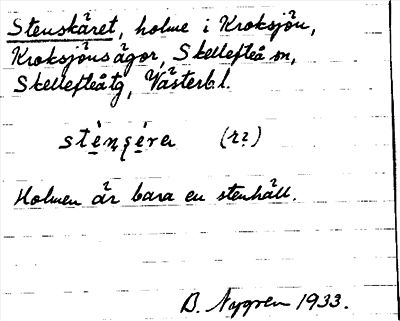 Stenskäret, holme i Kroksjön,
Kroksjöns ägor, Skellefteå sn,
Skellefteåtg, Västerb. l.
(r2)
Holmen är bara en stenhäll.
B. Nygren 1933.